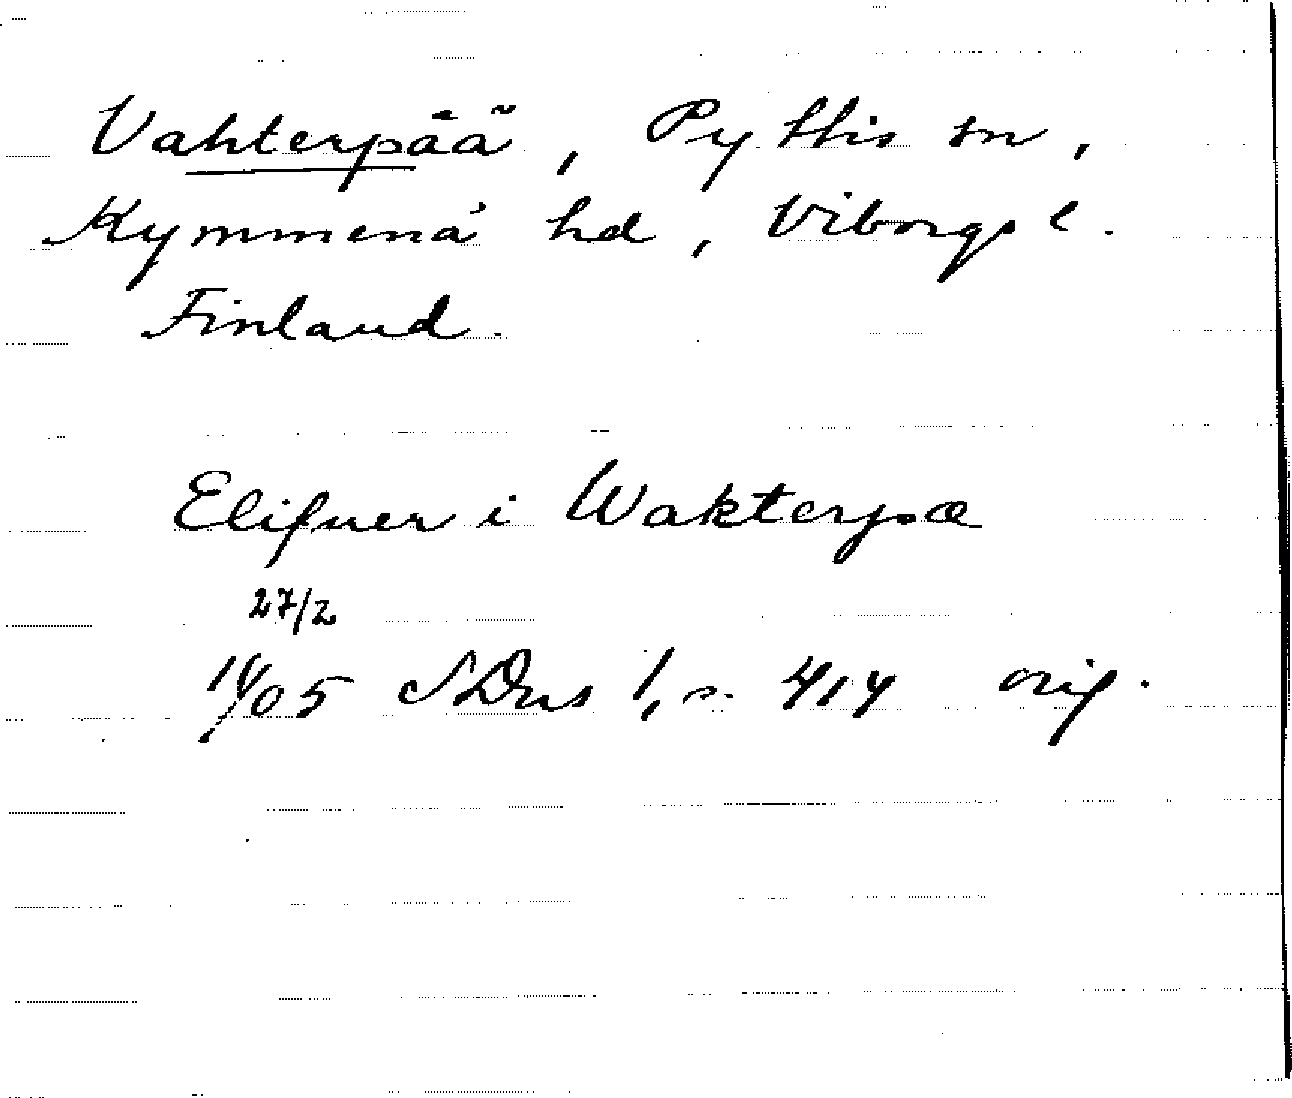 Vahterpää, Pyttis sn,
Kymmenå hd, Viborgs l.
Finland.
Elifuer i Wakterpæ
27/2
1405 SDns 1, s. 414 orig.